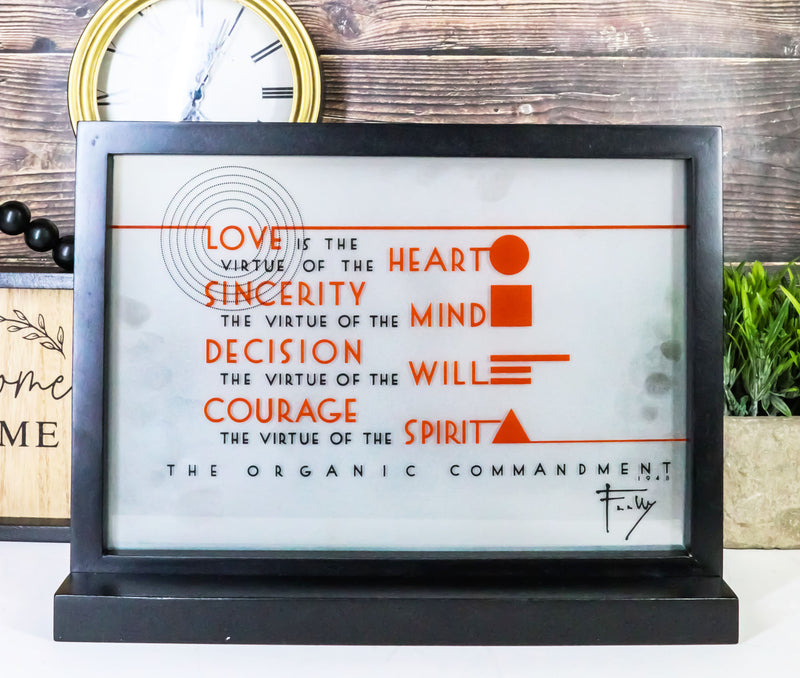 LOVE IS THE
VIRTUE OF THE HEART
SINCERITY
THE VIRTUE OF THE MIND
DECISION
THE VIRTUE OF THE WILL
COURAGE
THE VIRTUE OF THE SPIRIT
THE ORGANIC COMMANDMENT
1948
ome
ME
III